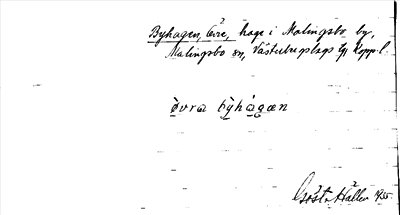 Byhagen, Övre, hage i Malingsbo by,
Malingsbo sn, Västerbergslags Kopp. l.
òvra by� 'hà̱gæn
Gösta Hallén 1935.